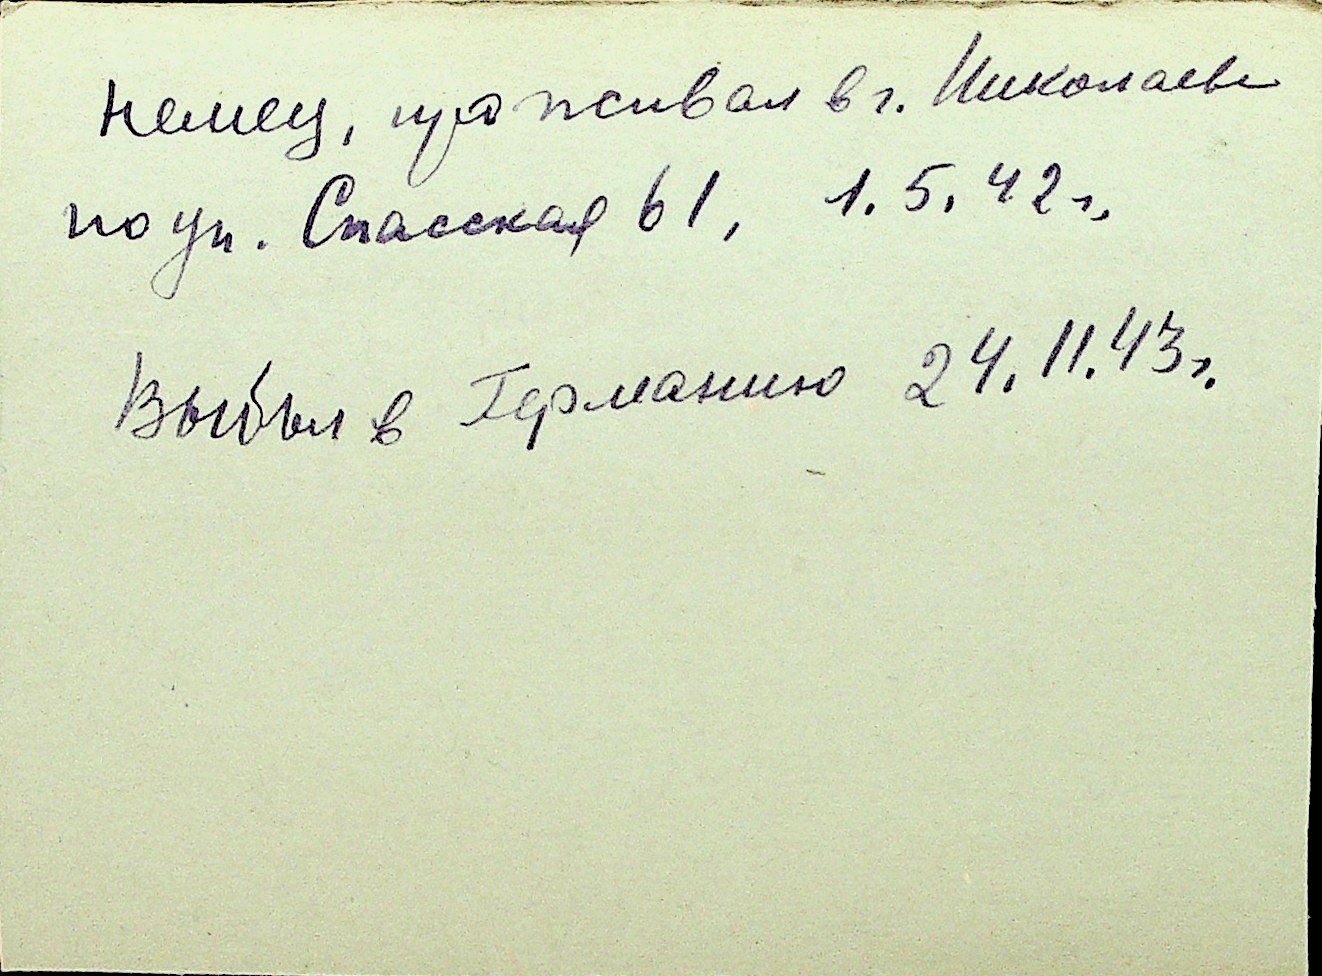 немец, проживал в г. Николаеве
по ул. Спасская 61, 1.5.42 г,
Выбыл в Германию 24.11.43 г.